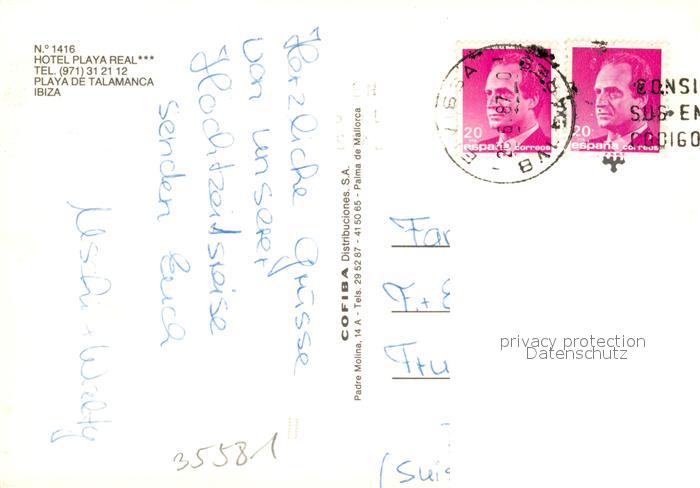 N.º 1416
HOTEL PLAYA REAL***
TEL. (971) 31 21 12
PLAYA DE TALAMANCA
IBIZA
Herzliche Grüsse
von unserer
Hochzeitsreise
senden Euch
35581
COFIBA Distribuciones, S.A.
Padre Molina, 14 A - Tels. 29 52 87 - 41 50 65 - Palma de Mallorca
20
españa correos
20
españa correos
CONSI
SUS EN
CODIGO
Fam
F.+E
(Suis
privacy protection
Datenschutz